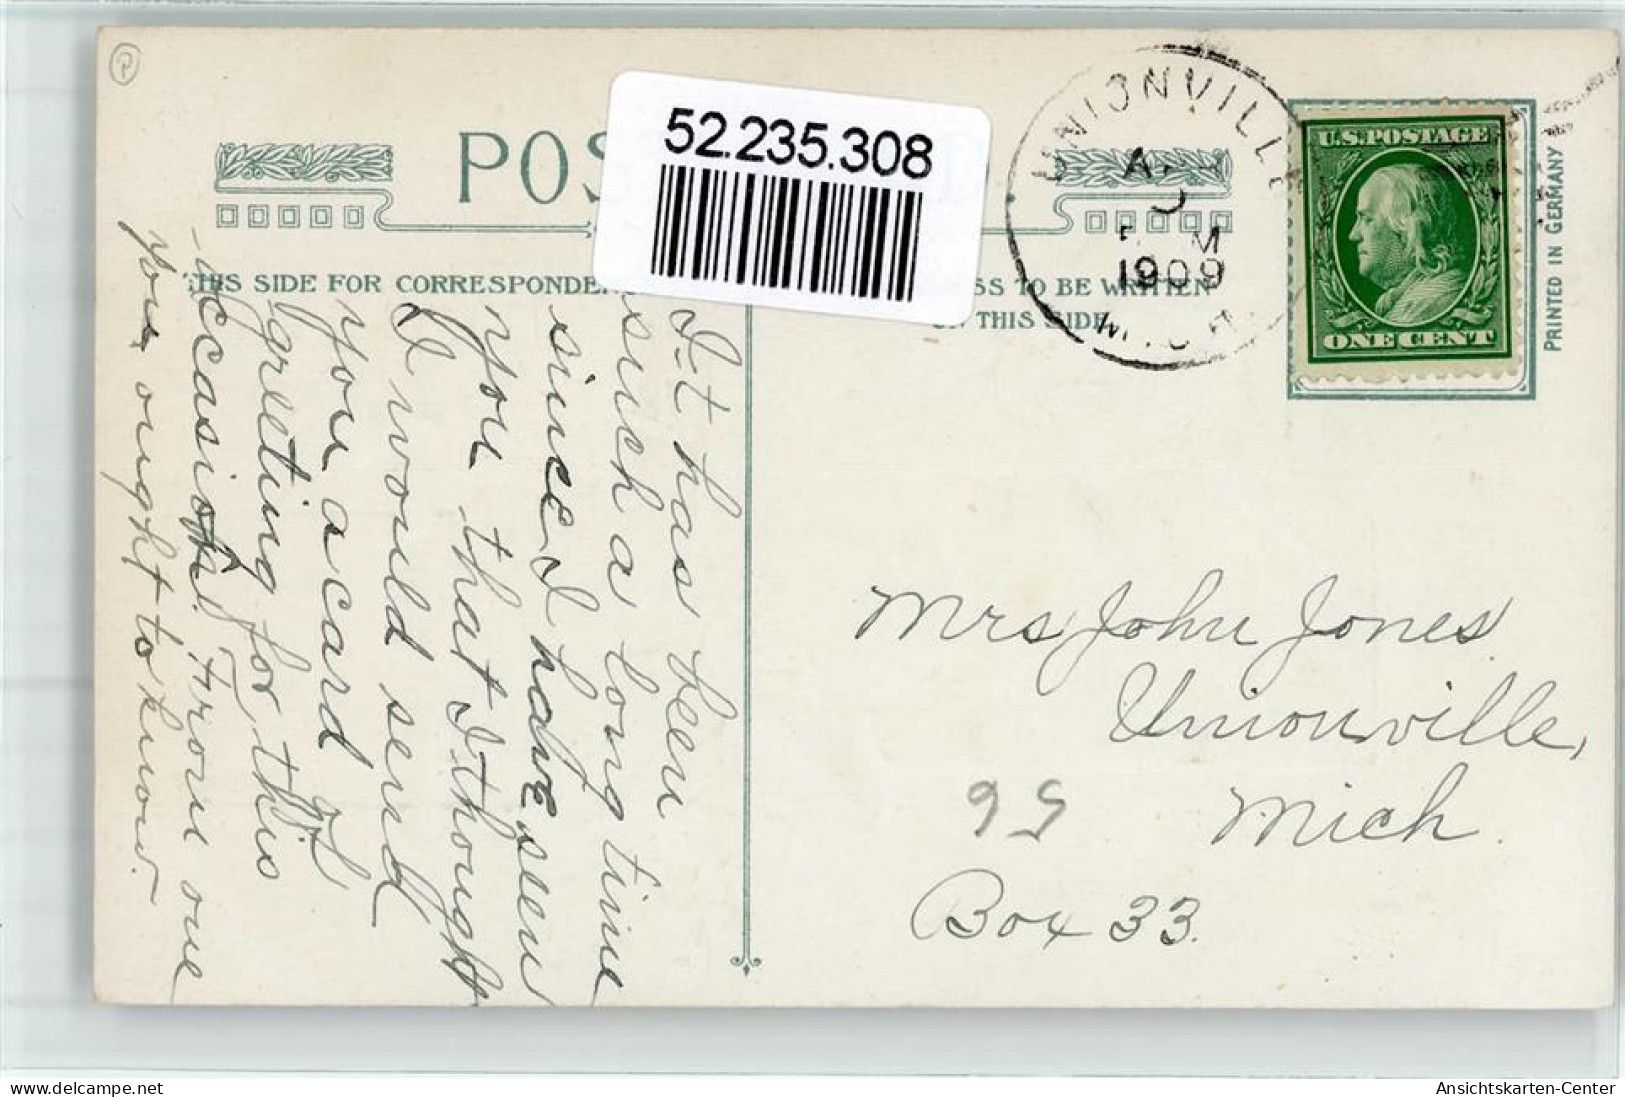 P
POS
52.235.308
UNIONVILLE
M
1909
MICH
U.S.POSTAGE
ONE CENT
PRINTED IN GERMANY
THIS SIDE FOR CORRESPONDEN
SS TO BE WRITTEN
THIS SIDE
It has been
such a long time
since I have seen
you that I thought
I would send
you a card of
greeting for this
occasion. From one
you ought to know.
Mrs John Jones
Unionville,
Mich.
95
Box 33.
delcampe.net
Ansichtskarten-Center